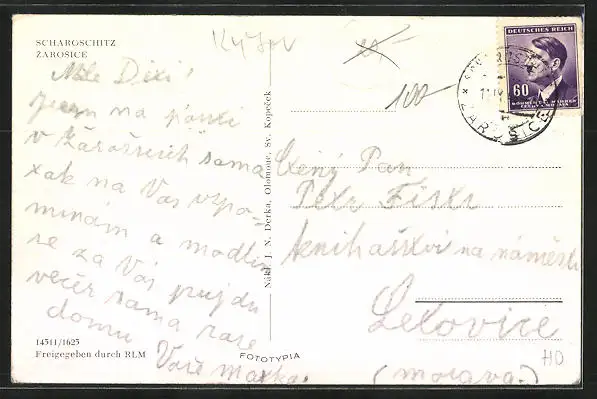 SCHAROSCHITZ
ŽAROŠICE
Kyjov
100-
Milé Děti!
jsem na pouti
v Žarošicích sama
tak na Vás vzpo-
mínám a modlím
se za Vás pujdu
večer sama zase
domu
Vaše matka.
14511/1625
Freigegeben durch RLM
Nákl. J. N. Derka, Olomouc, Sv. Kopeček
FOTOTYPIA
DEUTSCHES REICH
60
BÖHMEN U. MÄHREN
ČECHY A MORAVA
ŽAROŠICE
Ctěný Pan
Petr Fiskr
knihařství na náměstí
Letovice
(morava.)
HD